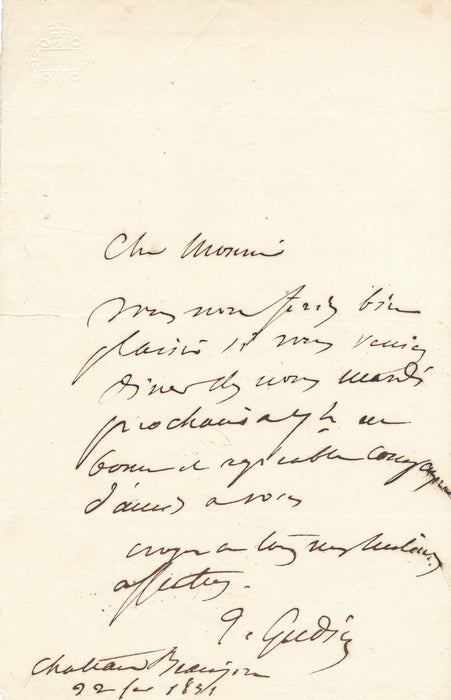 Cher Monsieur
vous nous ferez bien
plaisir si vous veniez
diner chez nous mardi
prochain a 7 h en
bonne et agréable compagnie
d'amis a vous
croyez a tous mes sentimens
affectueux.
T. Gudin
Chateau Beaujon
22 1851